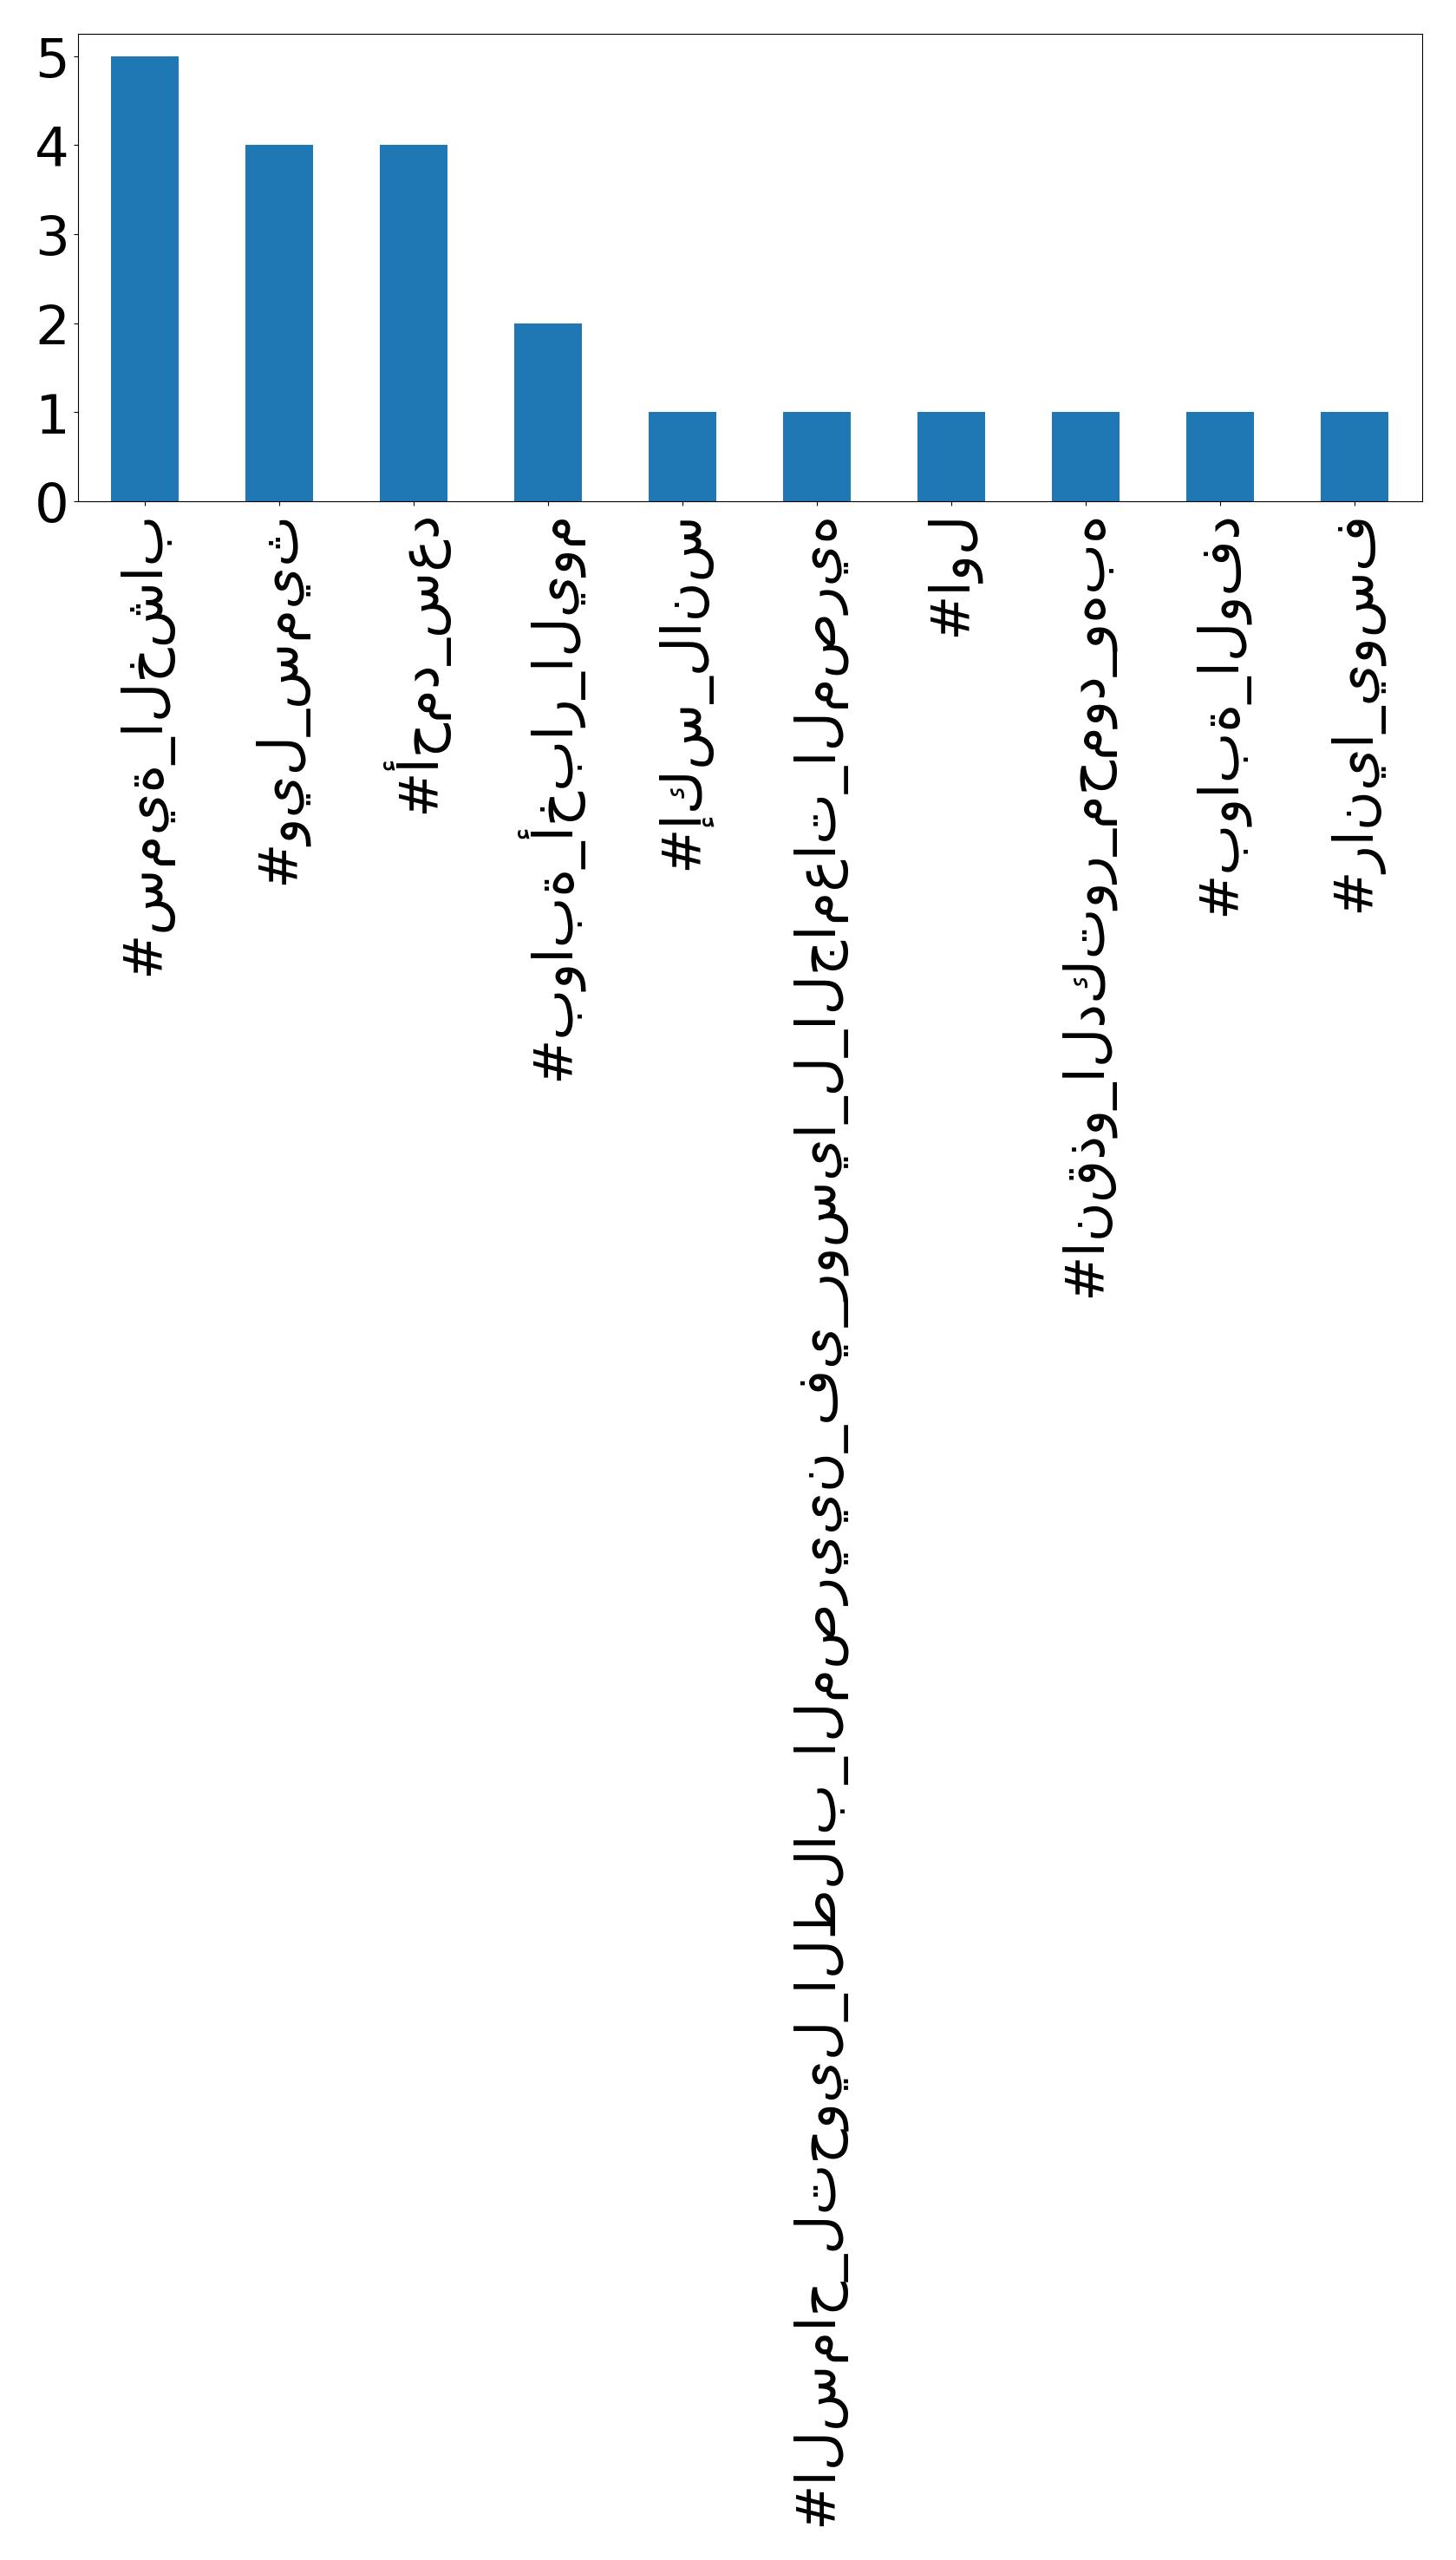 5
4
3
2
1
0
#سمية_الخشاب
#ويل_سميث
#أحمد_سعد
#بوابة_أخبار_اليوم
#إكس_لانس
#السماح_لتحويل_الطلاب_المصريين_في_روسيا_ل_الجامعات_المصريه
#اول
#انقذو_الدكتور_محمود_وهبه
#بوابة_الوفد
#رانيا_يوسف